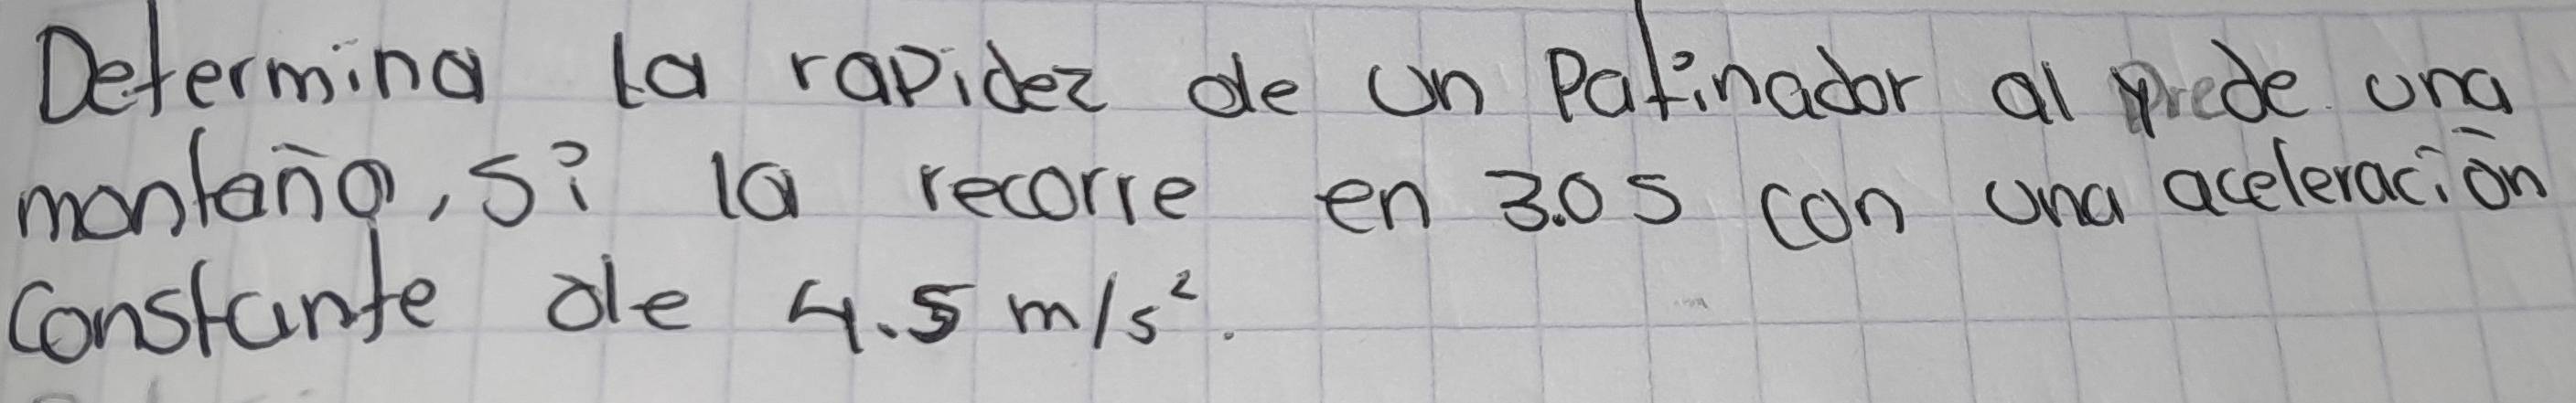 Determina la rapidez de un Patinador al piede una
montaña, si la recorre en 3.0 s con una aceleración
constante de 4.5 m/s².